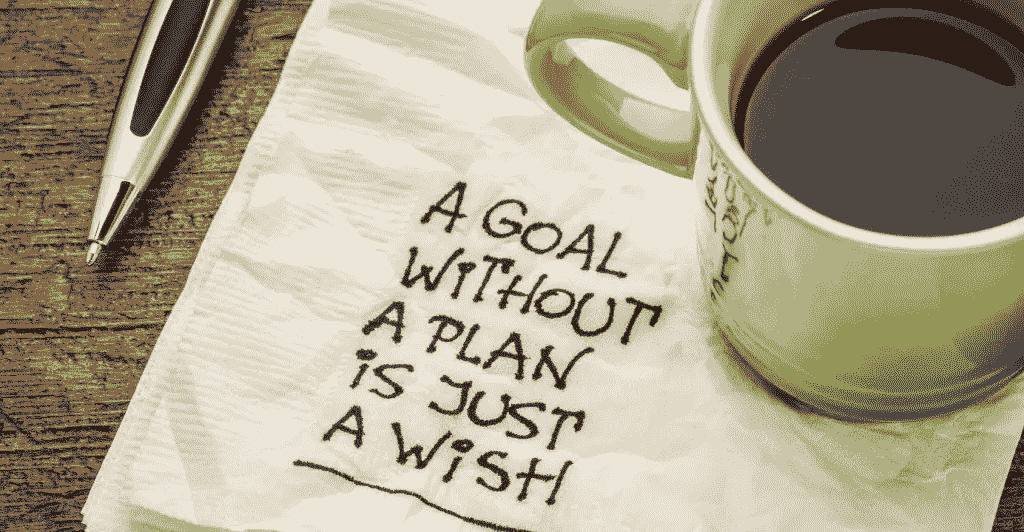 A GOAL
WITHOUT
A PLAN
iS JUST
A WiSH